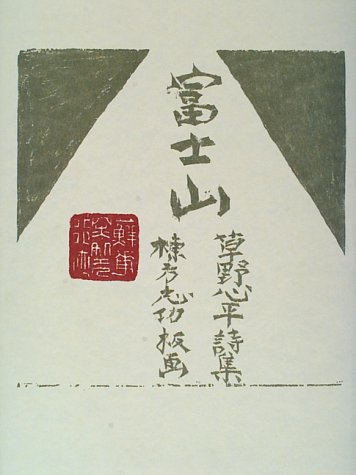 富士山
草野心平詩集
棟方志功板画